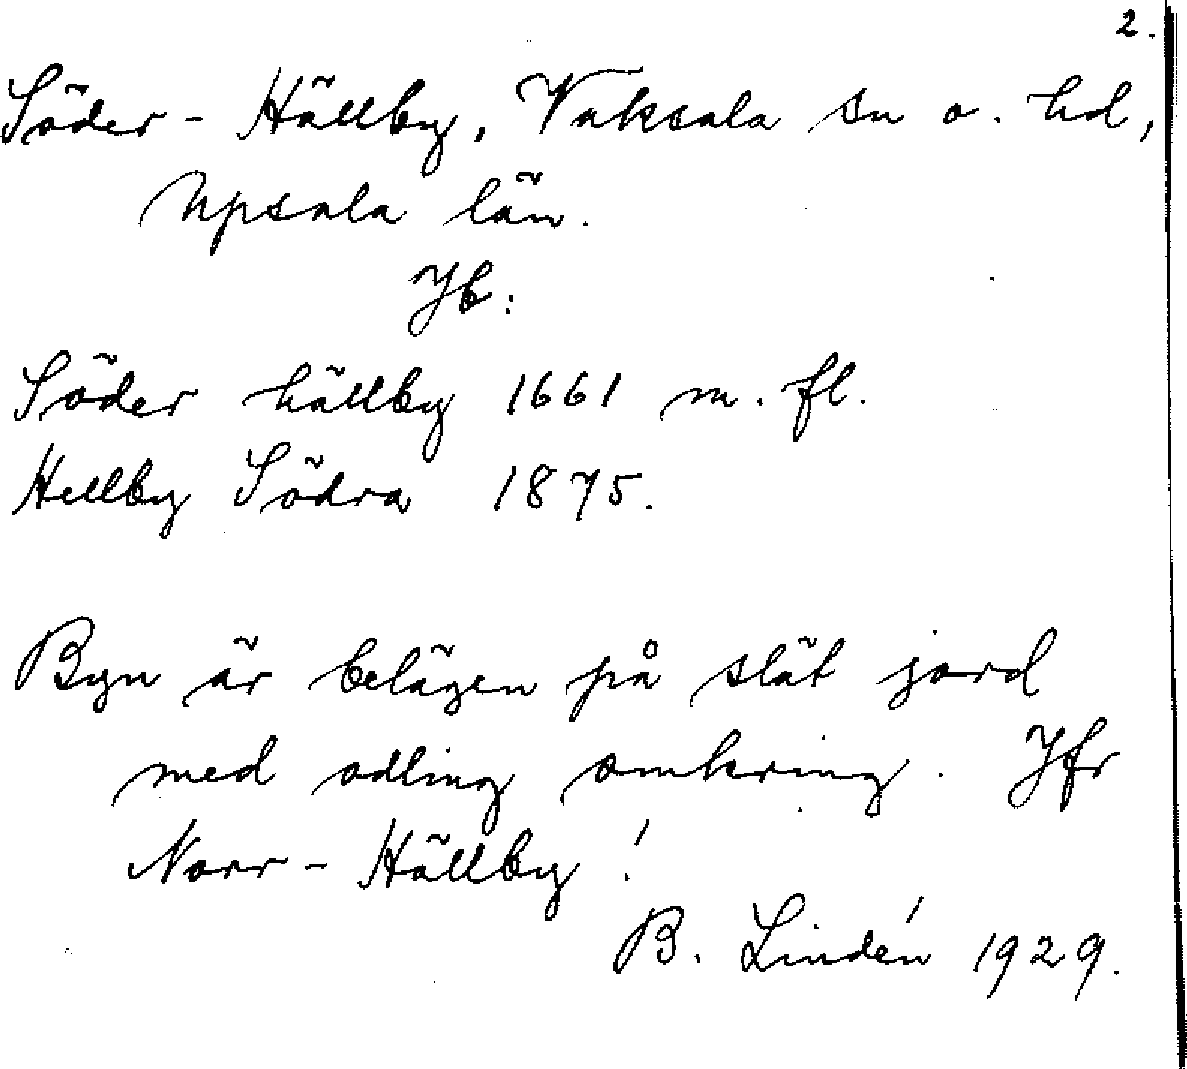 2.
Söder-Hällby, Vaksala sn o. hd,
Upsala län.
Jb:
Söder hällby 1661 m. fl.
Hellby Södra 1875.
Byn är belägen på slät jord
med odling omkring. Jfr
Norr-Hällby!
B. Lindén 1929.